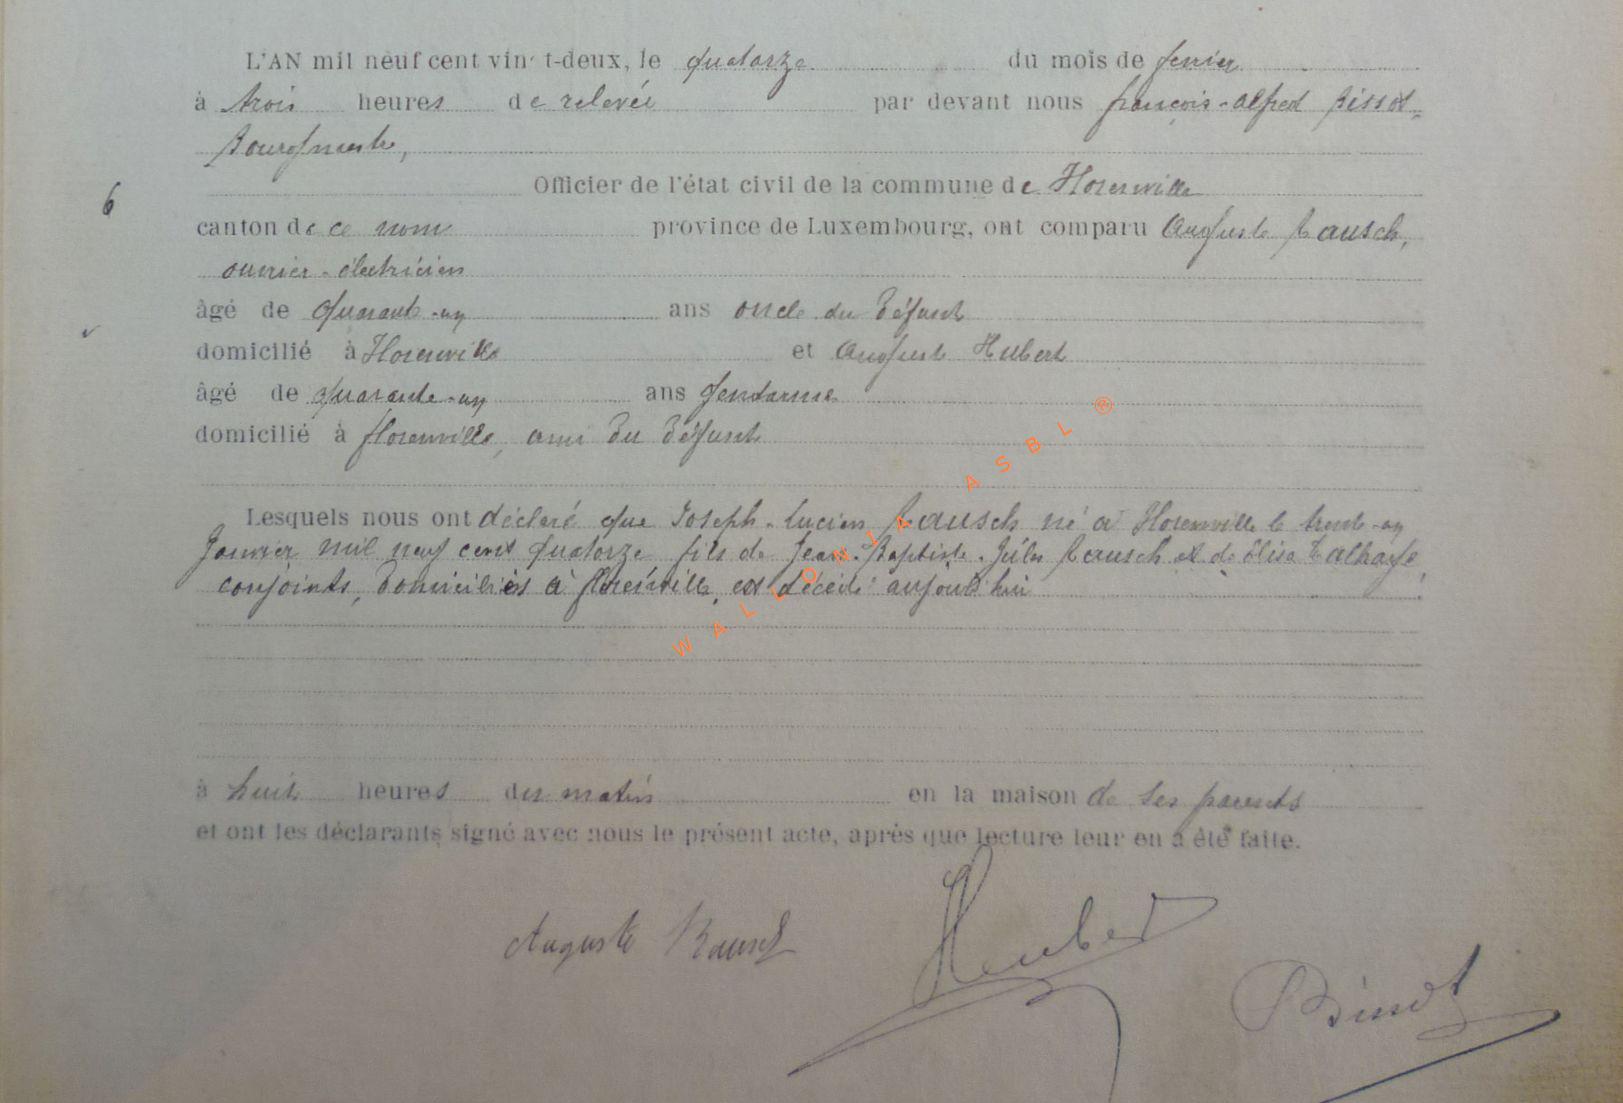 L'AN mil neuf cent vin t-deux, le quatorze du mois de fevrier
à trois heures de relevée par devant nous françois-alfred Bissot
Bourgmestre,
Officier de l'état civil de la commune de Florenville
6
canton de ce nom province de Luxembourg, ont comparu Auguste Rausch,
ouvrier-électricien
âgé de quarante-un ans oncle du défunt
domicilié à Florenville et Auguste Hubert
âgé de quarante-un ans gendarme
domicilié à florenville, ami du défunt
Lesquels nous ont déclaré que Joseph-Lucien Rausch né à Florenville le trente-un
Janvier mil neuf cent quatorze fils de Jean-Baptiste-Jules Rausch et de Elisa
conjoints, domiciliés à florenville, est décédé aujourd'hui
à huit heures du matin en la maison de ses parents
et ont les déclarants signé avec nous le présent acte, après que lecture leur en a été faite.
Auguste Rausch
Hubert
Bissot
WALLONIA ASBL ®